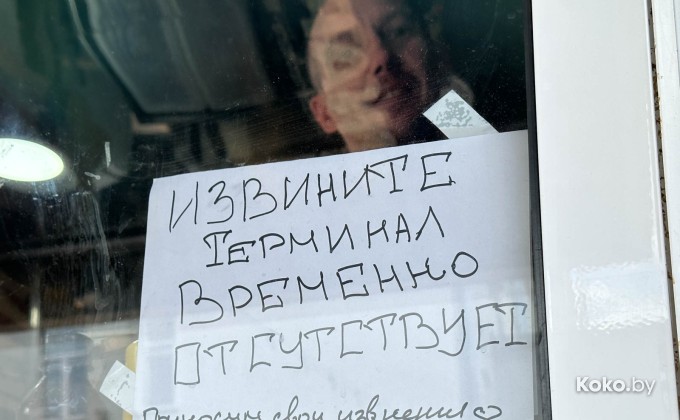 ИЗВИНИТЕ
ТЕРМИНАЛ
ВРЕМЕННО
ОТСУТСТВУЕТ
Приносим свои извнения
Koko.by